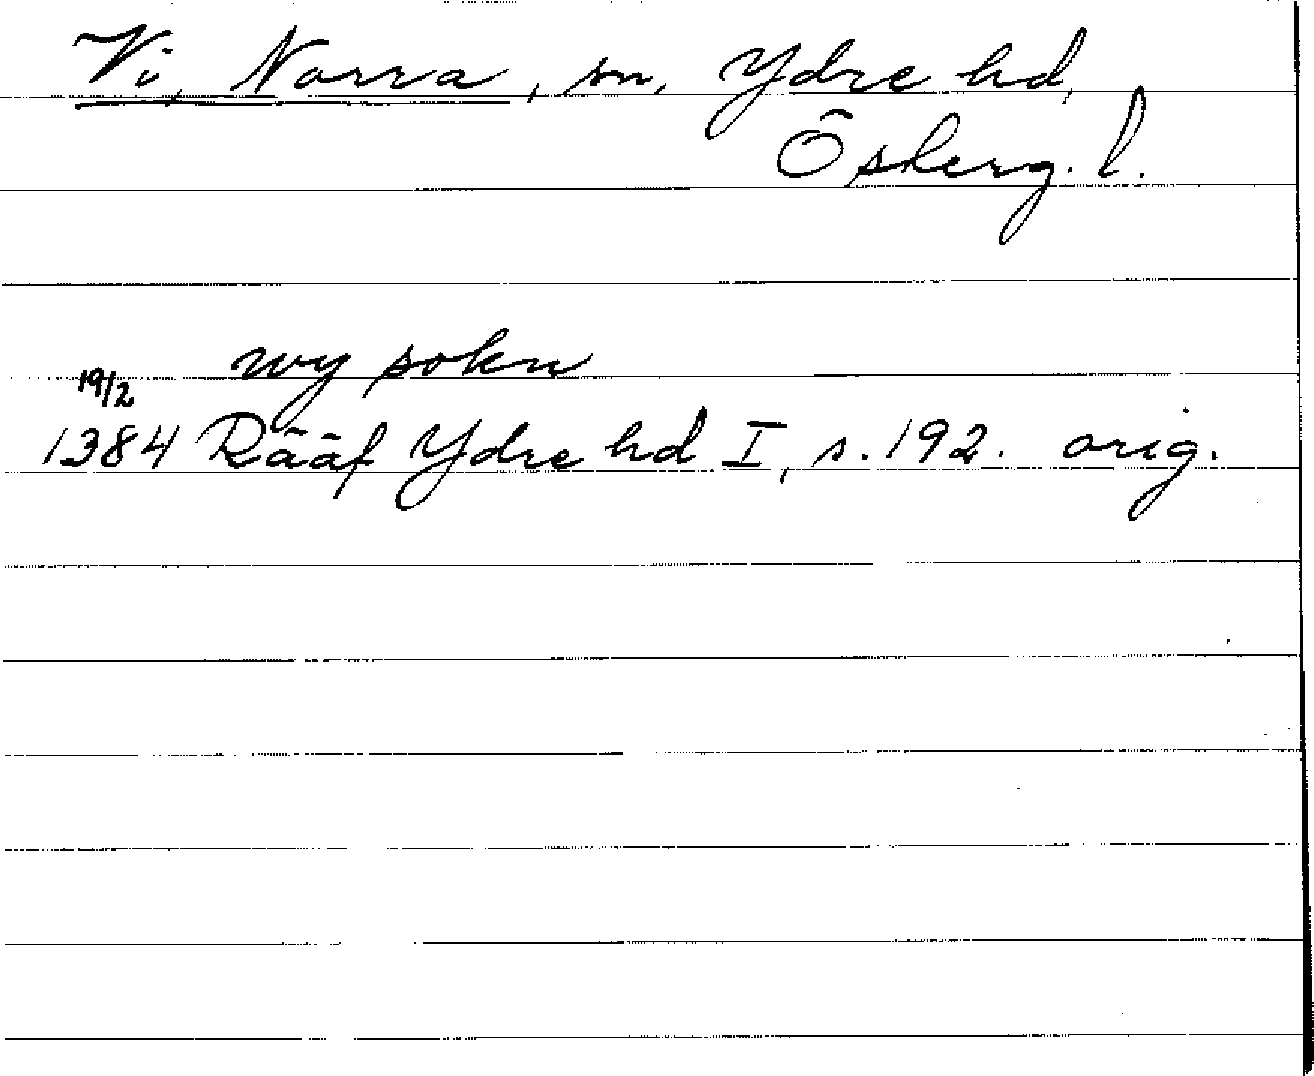 Vi, Norra, sn, Ydre hd,
Österg. l.
wy sokn
19/2
1384 Rääf Ydre hd I, s. 192. orig.